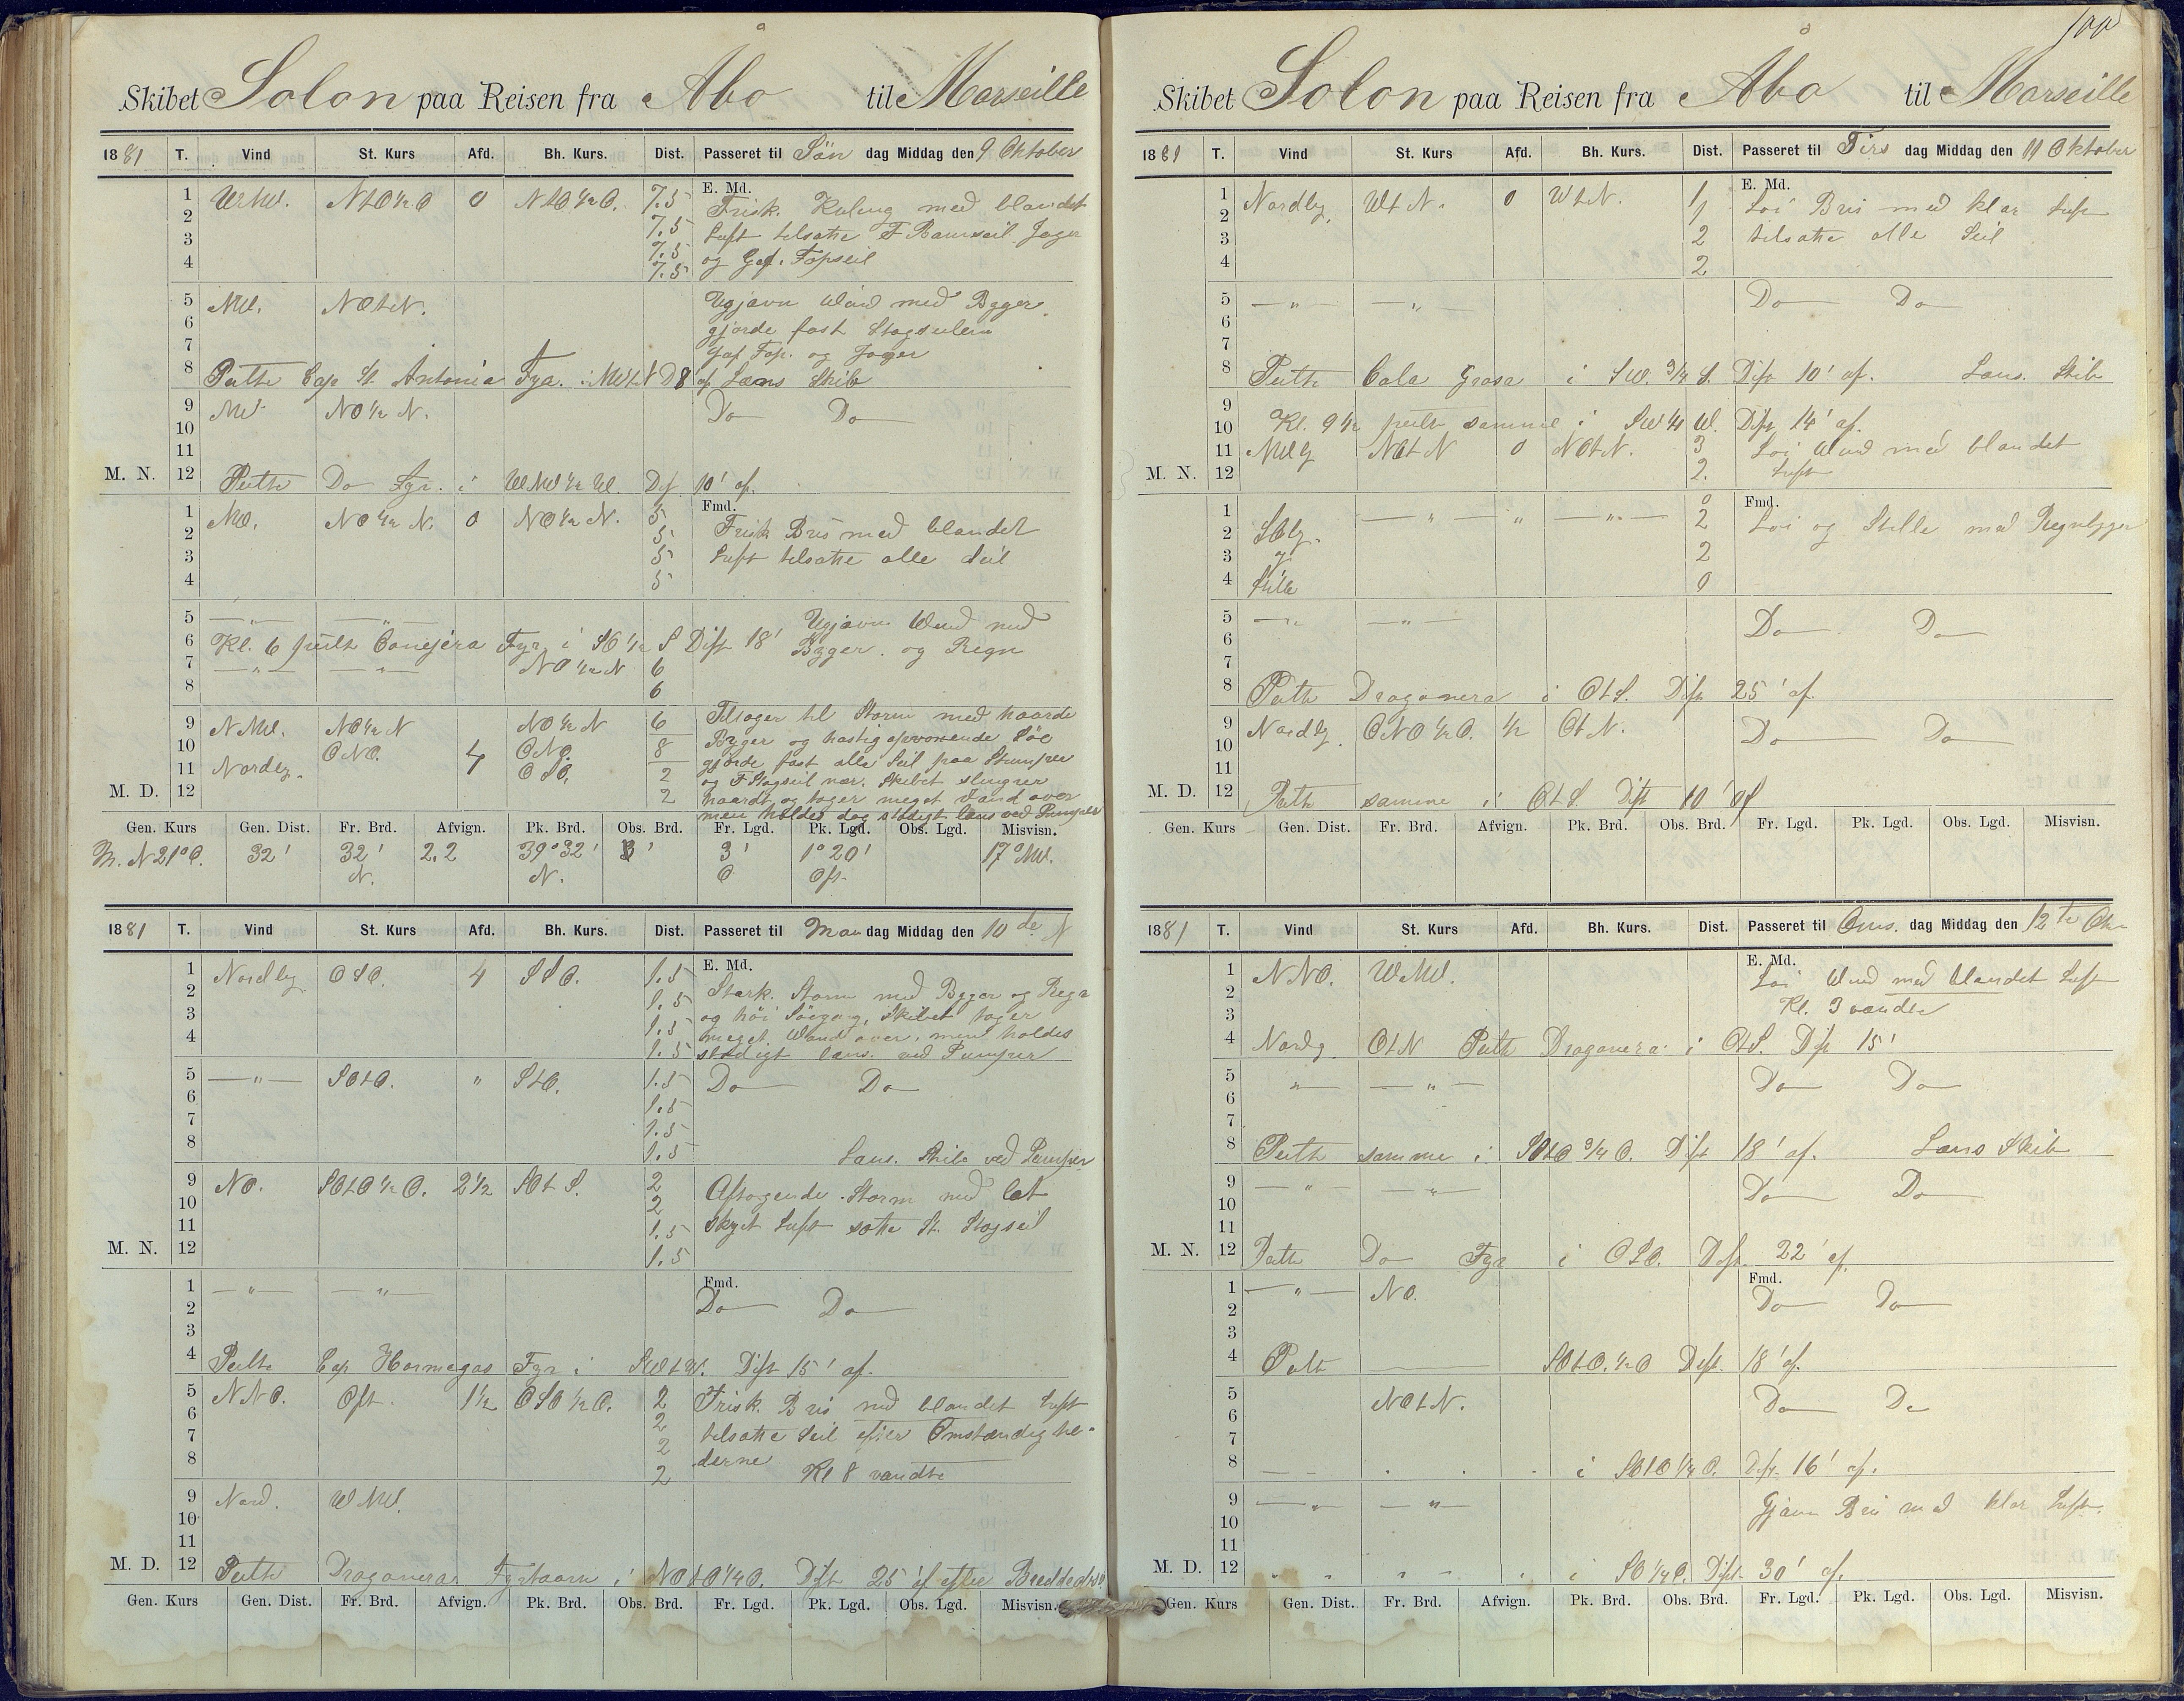 Skibet Solon paa Reisen fra Åbo til Marseille
1881 T. Vind St. Kurs Afd. Bh. Kurs. Dist. Passeret til Søn dag Middag den 9 Oktober
E. Md.
1 NtO½O 0 NtO½O. 7.5 Frisk Kuling med blandet
2 7.5 Luft tilsatte F Bramseil Jager
3 7.5 og Gaf. Topseil
4 7.5
5 NW. NOtN. Ujævn Wind med Byger.
6 gjorde fast Stagseilene
7 Gaf Top. og Jager
8 Peilte Cap St. Antonia Fyr. i D 8' af Læns Skib
9 NW NO½N. Do Do
10
11
M. N. 12 Peilte Do Fyr. i WNW½W. Dist 10' af.
Fmd.
1 NW. NO½N. 0 NO½N. 5 Frisk Bris med blandet
2 5 Luft tilsatte alle Seil
3 5
4 5
5 — " — — " — Ujævn Wind med
6 Kl. 6 peilt Conejera Fyr i SO½S Dist 18' Byger. og Regn
7 — " — — " — NO½N 6
8 6
9 N NW. NO½N NO½N 6 Tiltager til Storm med haarde
10 ONO. 4 ONO. 8 Byger og hastig opvoxende Søe
11 Nordlg. OSO. 2 gjorde fast alle Seil paa Stumper
og F Stagseil nær. Skibet slingrer
M. D. 12 2 haardt og tager meget Vand over
men holdes dog stadigt læns ved Pumper
Gen. Kurs Gen. Dist. Fr. Brd. Afvign. Pk. Brd. Obs. Brd. Fr. Lgd. Pk. Lgd. Obs. Lgd. Misvisn.
N 21° O. 32' 32' 2,2 39°32' 3' 1°20' 17° NW.
N. N. O Ost
1881 T. Vind St. Kurs Afd. Bh. Kurs. Dist. Passeret til Man dag Middag den 10de
E. Md.
1 Nordlg OSO. 4 SSO. 1.5 Stærk. Storm med Byger og Regn
2 1.5 og höi Söegang, Skibet tager
3 1.5 meget Wand over, men holdes
4 1.5 stadigt læns. ved Pumper
5 — " — SOtO. " StO. 1.5 Do Do
6 1.5
7 1.5
8 1.5 Læns. Skib ved Pumper
9 NO. SOtO½O. 2½ SOtS. 2 Aftagende Storm med let
10 2 skyet Luft satte St. Stagseil
11 1.5
M. N. 12 1.5
Fmd.
1 — " — — " — Do Do
2
3
4 Peilte Cap Hormegas Fyr i SWtW. Dist 15' af.
5 NNO. Ost. 1½ OSO½O. 2 Frisk. Bris med blandet Luft
6 2 tilsatte Seil efter Omstændighe-
7 2 derne
8 2 Kl 8 vendte
9 Nord. WNW.
10
11
M. D. 12 Peilte Dragonera Fyrtaarn i NOtO¼O. Dist 25' af efter
Gen. Kurs Gen. Dist. Fr. Brd. Afvign. Pk. Brd. Obs. Brd. Fr. Lgd. Pk. Lgd. Obs. Lgd. Misvisn.
100
Skibet Solon paa Reisen fra Åbo til Marseille
1881 T. Vind St. Kurs Afd. Bh. Kurs. Dist. Passeret til Tirs dag Middag den 11 Oktober
E. Md.
1 Nordlg. WtN. 0 WtN. 1 Löi Bris med klar Luft
2 1 tilsatte alle Seil
3 2
4 2
5 — " — — " — Do Do
6
7
8 Peilte Cala Grosa i SW.¾S. Dist 10' af. Læns. Skib
9
10 Kl. 9½ peilt samme i SW¼W. Dist 14' af.
11 NWlg NOtN 0 NOtN. 3 Löi Wind med blandet
M. N. 12 2. Luft
Fmd.
1 — " — " — " — 0 Löi og Stille med Regnbyger
2 SOlg. 2
3 2
4 Stille 0
5 — " — — " — Do Do
6
7
8 Peilte Dragonera i OtS. Dist 25' af.
9 Nordlg. ONO½O. ½ OtN. Do Do
10
11
M. D. 12 Peilte samme i OtS. Dist 10' af
Gen. Kurs Gen. Dist. Fr. Brd. Afvign. Pk. Brd. Obs. Brd. Fr. Lgd. Pk. Lgd. Obs. Lgd. Misvisn.
1881 T. Vind St. Kurs Afd. Bh. Kurs. Dist. Passeret til Ons. dag Middag den 12te Okt
E. Md.
1 NNO. WNW. Löi Wind med blandet Luft
2 Kl. 3 vendte
3
4 Nordlg OtN Peilte Dragonera i OtS. Dist 15'
5 — " — — " — Do Do
6
7
8 Peilte samme i SOtO¾O. Dist 18' af. Læns Skib
9 — " — — " — Do Do
10
11
M. N. 12 Peilte Do Fyr i OSO. Dist. 22' af.
Fmd.
1 — " — NO. Do Do
2
3
4 Peilt SOtO.½O Dist. 18' af.
5 NOtN. Do Do
6
7
8 i SOtO¼O. Dist. 16' af.
9 — " — — " — Gjævn Bris med klar Luft.
10
11
M. D. 12 " " " " i SO¼O. Dist. 30' af.
Gen. Kurs Gen. Dist. Fr. Brd. Afvign. Pk. Brd. Obs. Brd. Fr. Lgd. Pk. Lgd. Obs. Lgd. Misvisn.